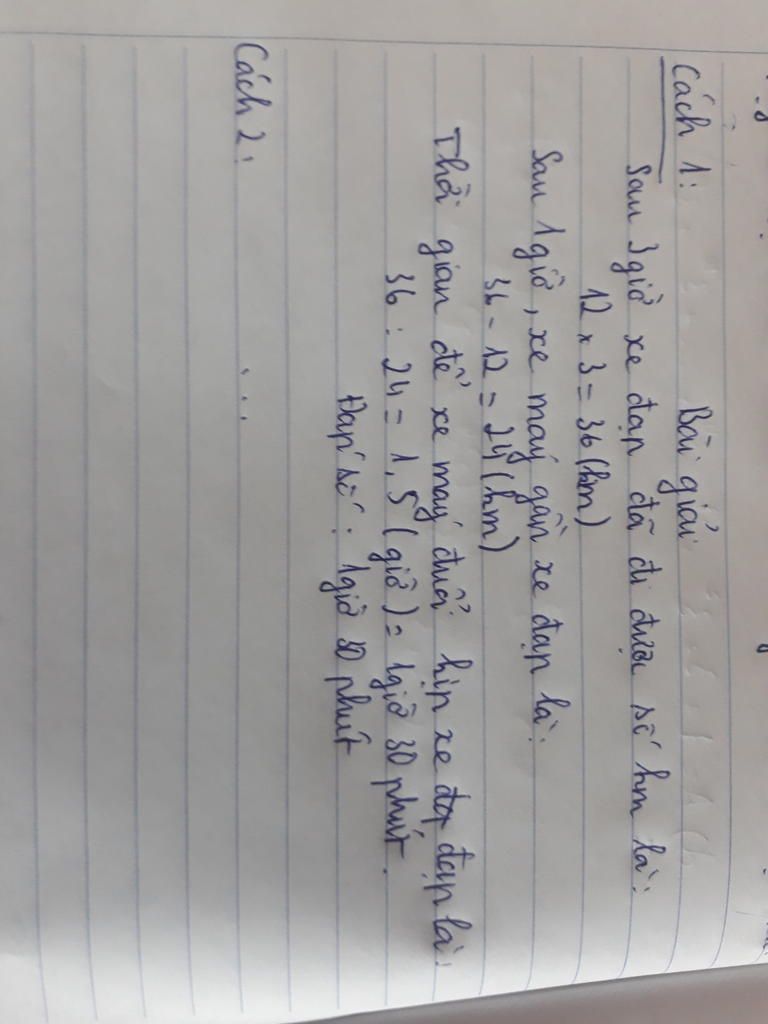 Bài giải
Cách 1:
Sau 3 giờ xe đạp đã đi được số km là:
12 x 3 = 36 (km)
Sau 1 giờ, xe máy gần xe đạp là:
36 - 12 = 24 (km)
Thời gian để xe máy đuổi kịp xe đạp là:
36 : 24 = 1,5 (giờ) = 1 giờ 30 phút.
Đáp số: 1 giờ 30 phút
Cách 2:
...